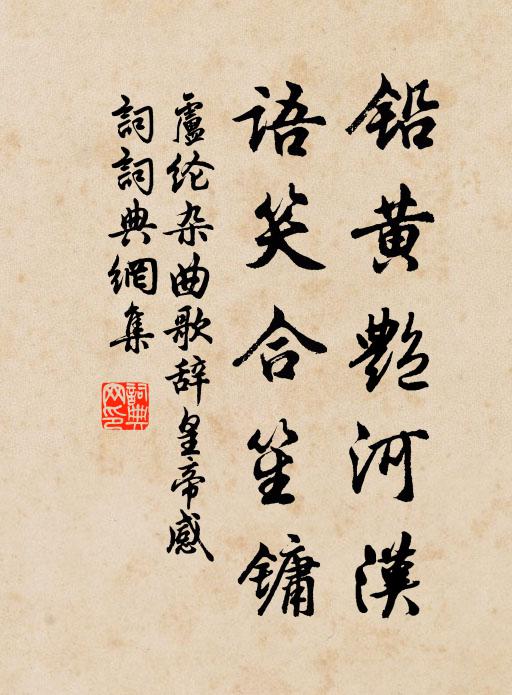 铅黄艳河漢
语笑合笙镛
盧纶杂曲歌辞皇帝感
詞詞典網集
詞典网印